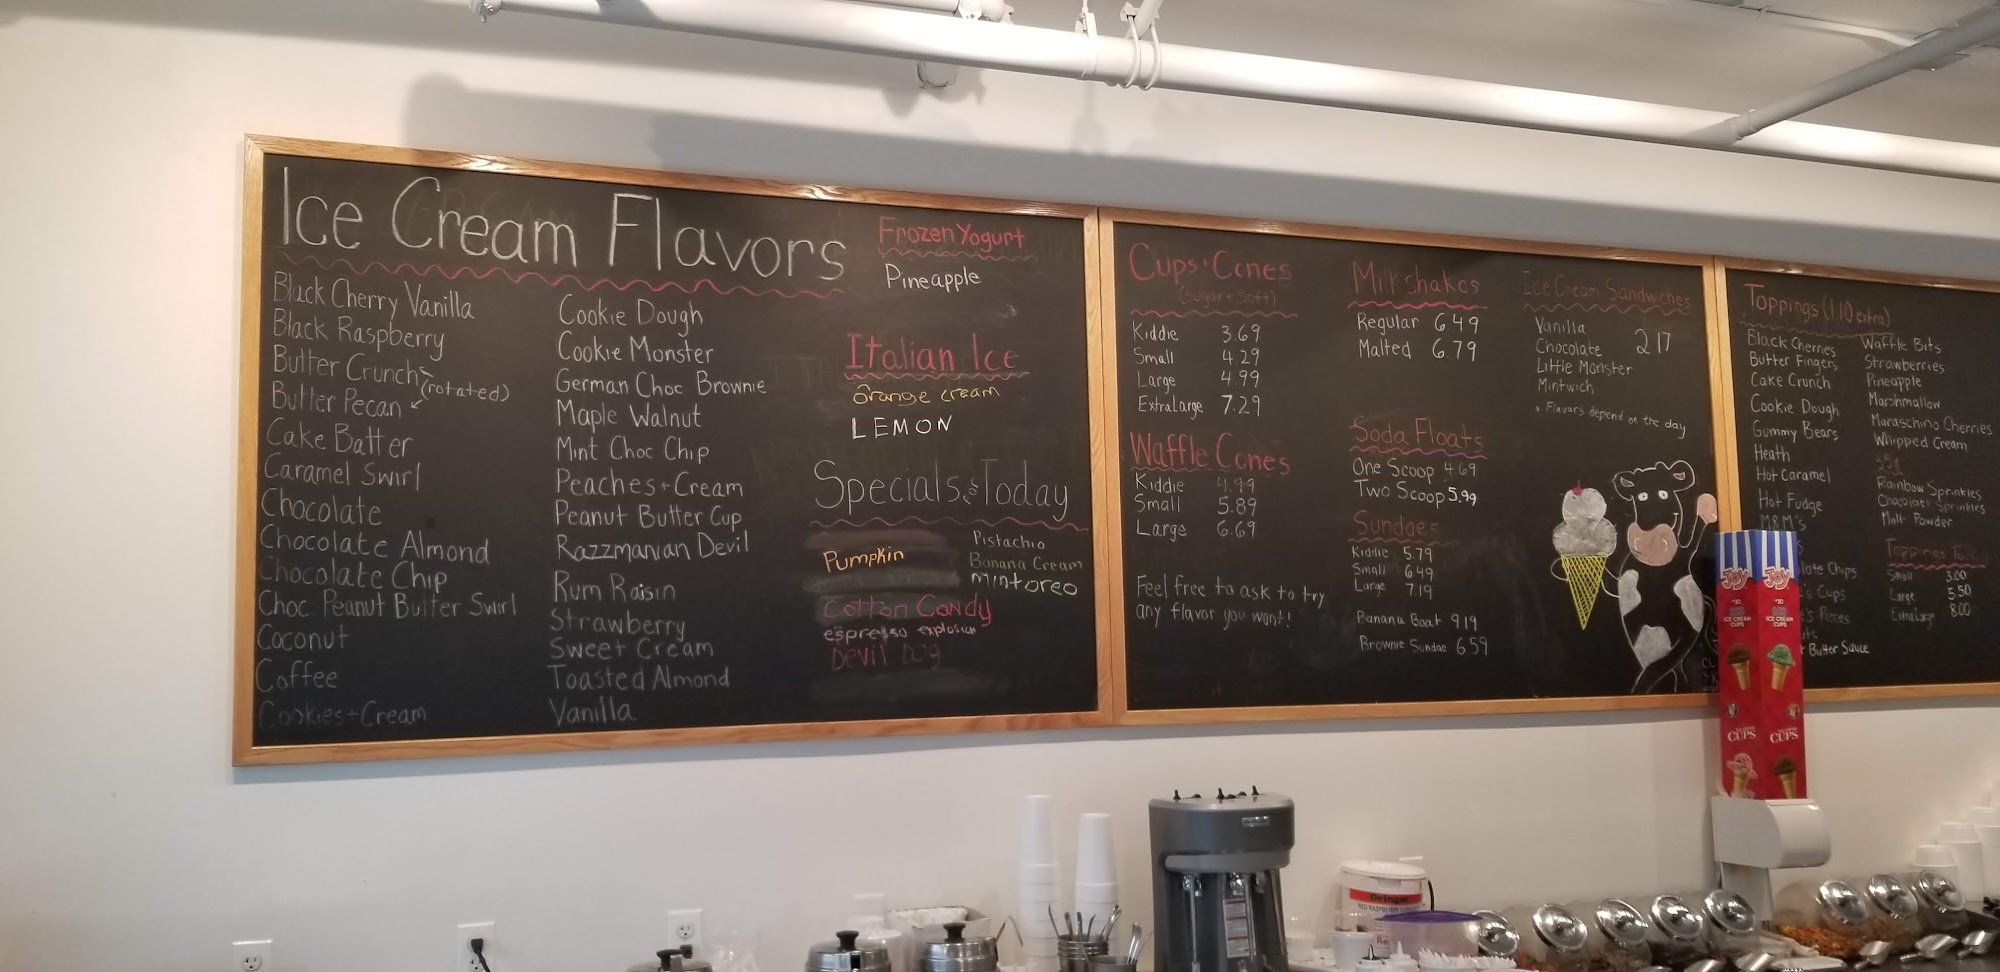 Ice Cream Flavors
Black Cherry Vanilla
Black Raspberry
Butter Crunch
(rotated)
Butter Pecan
Cake Batter
Caramel Swirl
Chocolate
Chocolate Almond
Chocolate Chip
Choc. Peanut Butter Swirl
Coconut
Coffee
Cookies+Cream
Cookie Dough
Cookie Monster
German Choc Brownie
Maple Walnut
Mint Choc Chip
Peaches+Cream
Peanut Butter Cup
Razzmanian Devil
Rum Raisin
Strawberry
Sweet Cream
Toasted Almond
Vanilla
Frozen Yogurt
Pineapple
Italian Ice
Orange cream
LEMON
Specials for Today
Pumpkin
Cotton Candy
espresso explosion
Devil Dog
Pistachio
Banana Cream
mintoreo
Cups+Cones
(sugar+soft)
Kiddie 3.69
Small 4.29
Large 4.99
Extra Large 7.29
Waffle Cones
Kiddie 4.99
Small 5.89
Large 6.69
Feel free to ask to try
any flavor you want!!
Milkshakes
Regular 6.49
Malted 6.79
Soda Floats
One Scoop 4.69
Two Scoop 5.99
Sundaes
Kiddie 5.79
Small 6.49
Large 7.19
Banana Boat 9.19
Brownie Sundae 6.59
Ice Cream Sandwiches
Vanilla 2.17
Chocolate
Little Monster
Mintwich
* Flavors depend on the day
Toppings (1.10 extra)
Black Cherries
Butter Fingers
Cake Crunch
Cookie Dough
Gummy Bears
Heath
Hot Caramel
Hot Fudge
M&M's
late Chips
's Cups
's Pieces
Butter Sauce
Waffle Bits
Strawberries
Pineapple
Marshmallow
Maraschino Cherries
Whipped Cream
Rainbow Sprinkles
Chocolate Sprinkles
Malt Powder
Toppings
Small 3.00
Large 5.50
Extra Large 8.00
JOY JOY
ICE CREAM CUPS
ICE CREAM CUPS
CUPS CUPS